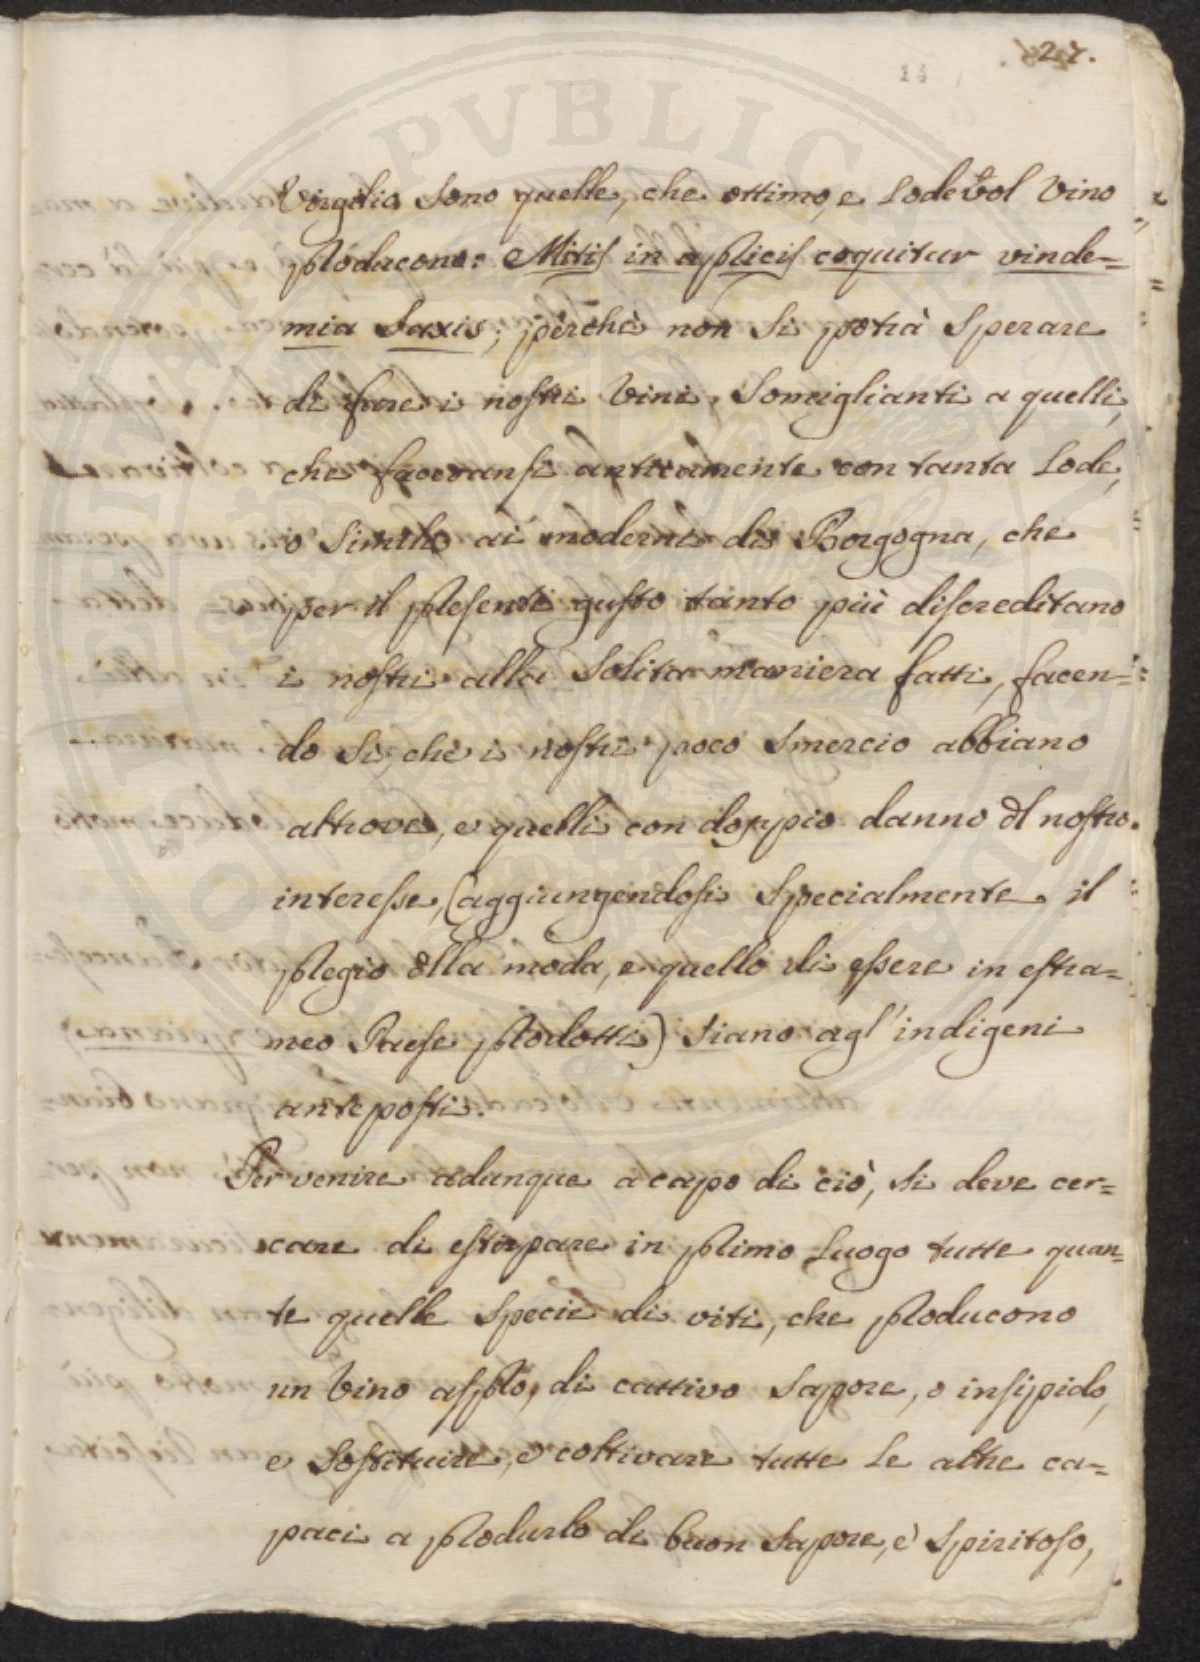 27.
14
Virgilio sono quelle, che ottimo, e lodevol vino
producono: Mitis in apricis coquitur vinde=
mia saxis; perchè non si potrà sperare
di fare i nostri vini, somiglianti a quelli,
che facevansi anticamente con tanta lode,
o simili ai moderni di Borgogna, che
per il presente gusto tanto più discreditano
i nostri alla solita maniera fatti, facen=
do sì, che i nostri poco smercio abbiano
altrove, e quelli con doppio danno dl nostro
interesse, (aggiungendosi specialmente il
pregio dlla moda, e quello di essere in estra=
neo Paese prodotti) siano agl'indigeni
anteposti.
Per venire adunque a capo di ciò, si deve cer=
care di estirpare in primo luogo tutte quan=
te quelle specie di viti, che producono
un vino aspro, di cattivo sapore, o insipido,
e sostituire, e coltivare tutte le altre ca=
paci a produrlo di buon sapore, e spiritoso,